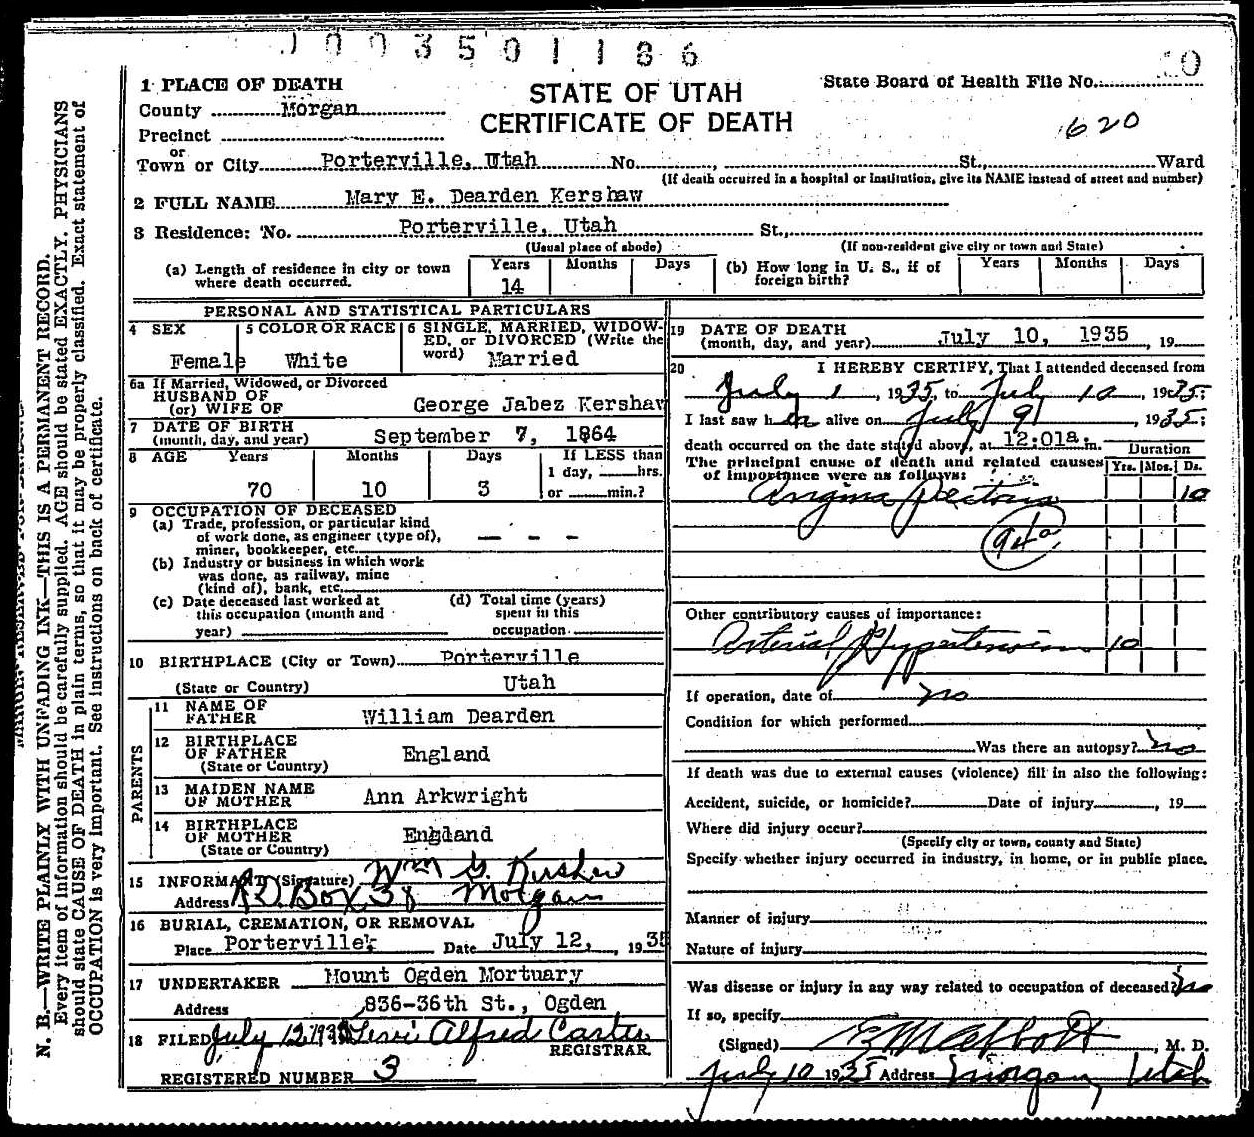 1003501186
1 PLACE OF DEATH
County Morgan
Precinct
or
Town or City Porterville, Utah No. , St., Ward
STATE OF UTAH
CERTIFICATE OF DEATH
State Board of Health File No.
620
(If death occurred in a hospital or institution, give its NAME instead of street and number)
2 FULL NAME Mary E. Dearden Kershaw
3 Residence: No. Porterville, Utah St.,
(Usual place of abode) (If non-resident give city or town and State)
(a) Length of residence in city or town where death occurred. Years 14 Months Days
(b) How long in U. S., if of foreign birth? Years Months Days
PERSONAL AND STATISTICAL PARTICULARS
4 SEX Female
5 COLOR OR RACE White
6 SINGLE, MARRIED, WIDOWED, or DIVORCED (Write the word) Married
6a If Married, Widowed, or Divorced
HUSBAND OF
(or) WIFE OF George Jabez Kershaw
7 DATE OF BIRTH
(month, day, and year) September 7, 1864
8 AGE Years Months Days If LESS than
1 day, hrs.
70 10 3 or min.?
9 OCCUPATION OF DECEASED
(a) Trade, profession, or particular kind
of work done, as engineer (type of), — – –
miner, bookkeeper, etc.
(b) Industry or business in which work
was done, as railway, mine
(kind of), bank, etc.
(c) Date deceased last worked at
this occupation (month and
year)
(d) Total time (years)
spent in this
occupation
10 BIRTHPLACE (City or Town) Porterville
(State or Country) Utah
PARENTS
11 NAME OF
FATHER William Dearden
12 BIRTHPLACE
OF FATHER England
(State or Country)
13 MAIDEN NAME
OF MOTHER Ann Arkwright
14 BIRTHPLACE
OF MOTHER England
(State or Country)
15 INFORMANT (Signature) Wm G. Kershaw
Address R.D. Box 38 Morgan
16 BURIAL, CREMATION, OR REMOVAL
Place Porterville Date July 12, 1935
17 UNDERTAKER Mount Ogden Mortuary
Address 836-36th St., Ogden
18 FILED July 12 1935 Alfred Carter
REGISTRAR.
REGISTERED NUMBER 3
19 DATE OF DEATH
(month, day, and year) July 10, 1935, 19
20 I HEREBY CERTIFY, That I attended deceased from
July 1, 1935, to July 10, 1935.
I last saw her alive on July 9, 1935;
death occurred on the date stated above, at 12:01a.m.
The principal cause of death and related causes
of importance were as follows:
Duration
Yrs. Mos. Ds.
Angina Pectoris 10
94a
Other contributory causes of importance:
Arterial Hypertension 10
If operation, date of no
Condition for which performed
Was there an autopsy? no
If death was due to external causes (violence) fill in also the following:
Accident, suicide, or homicide? Date of injury , 19
Where did injury occur?
(Specify city or town, county and State)
Specify whether injury occurred in industry, in home, or in public place.
Manner of injury
Nature of injury
Was disease or injury in any way related to occupation of deceased? no
If so, specify
(Signed) E M Abbott, M. D.
July 10 1935 Address Morgan, Utah
N. B.—WRITE PLAINLY WITH UNFADING INK—THIS IS A PERMANENT RECORD.
Every item of information should be carefully supplied. AGE should be stated EXACTLY. PHYSICIANS
should state CAUSE OF DEATH in plain terms, so that it may be properly classified. Exact statement of
OCCUPATION is very important. See instructions on back of certificate.